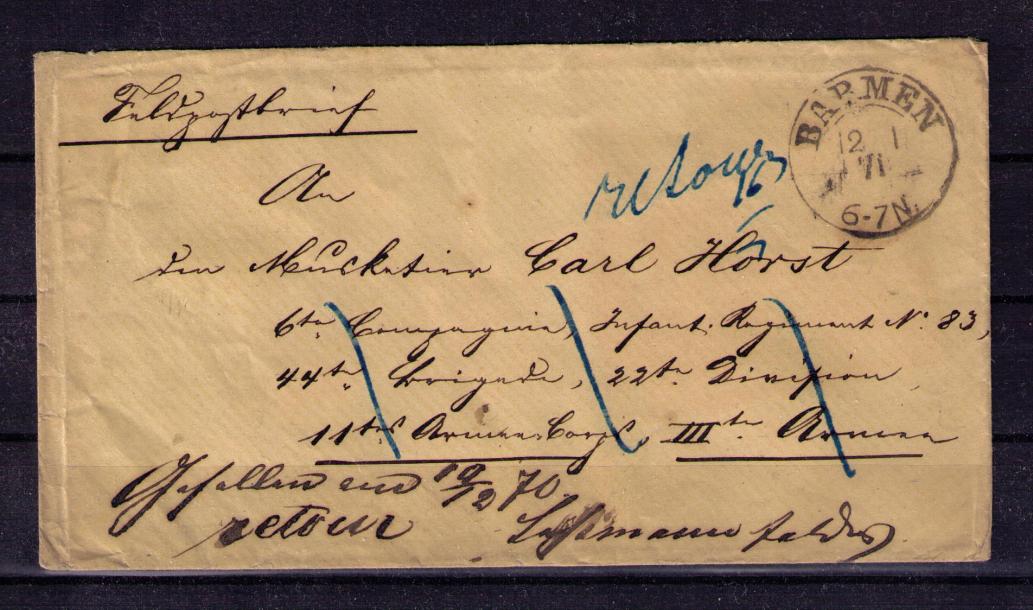 Feldpostbrief
BARMEN
12 1
71
6-7N.
An
retour
den Musketier Carl Horst
6te Compagnie, Infant. Regiment No. 83,
44te Brigade, 22te Division
11tes Armee-Corps, IIIte Armee
Gefallen am 10/12 70.
retour